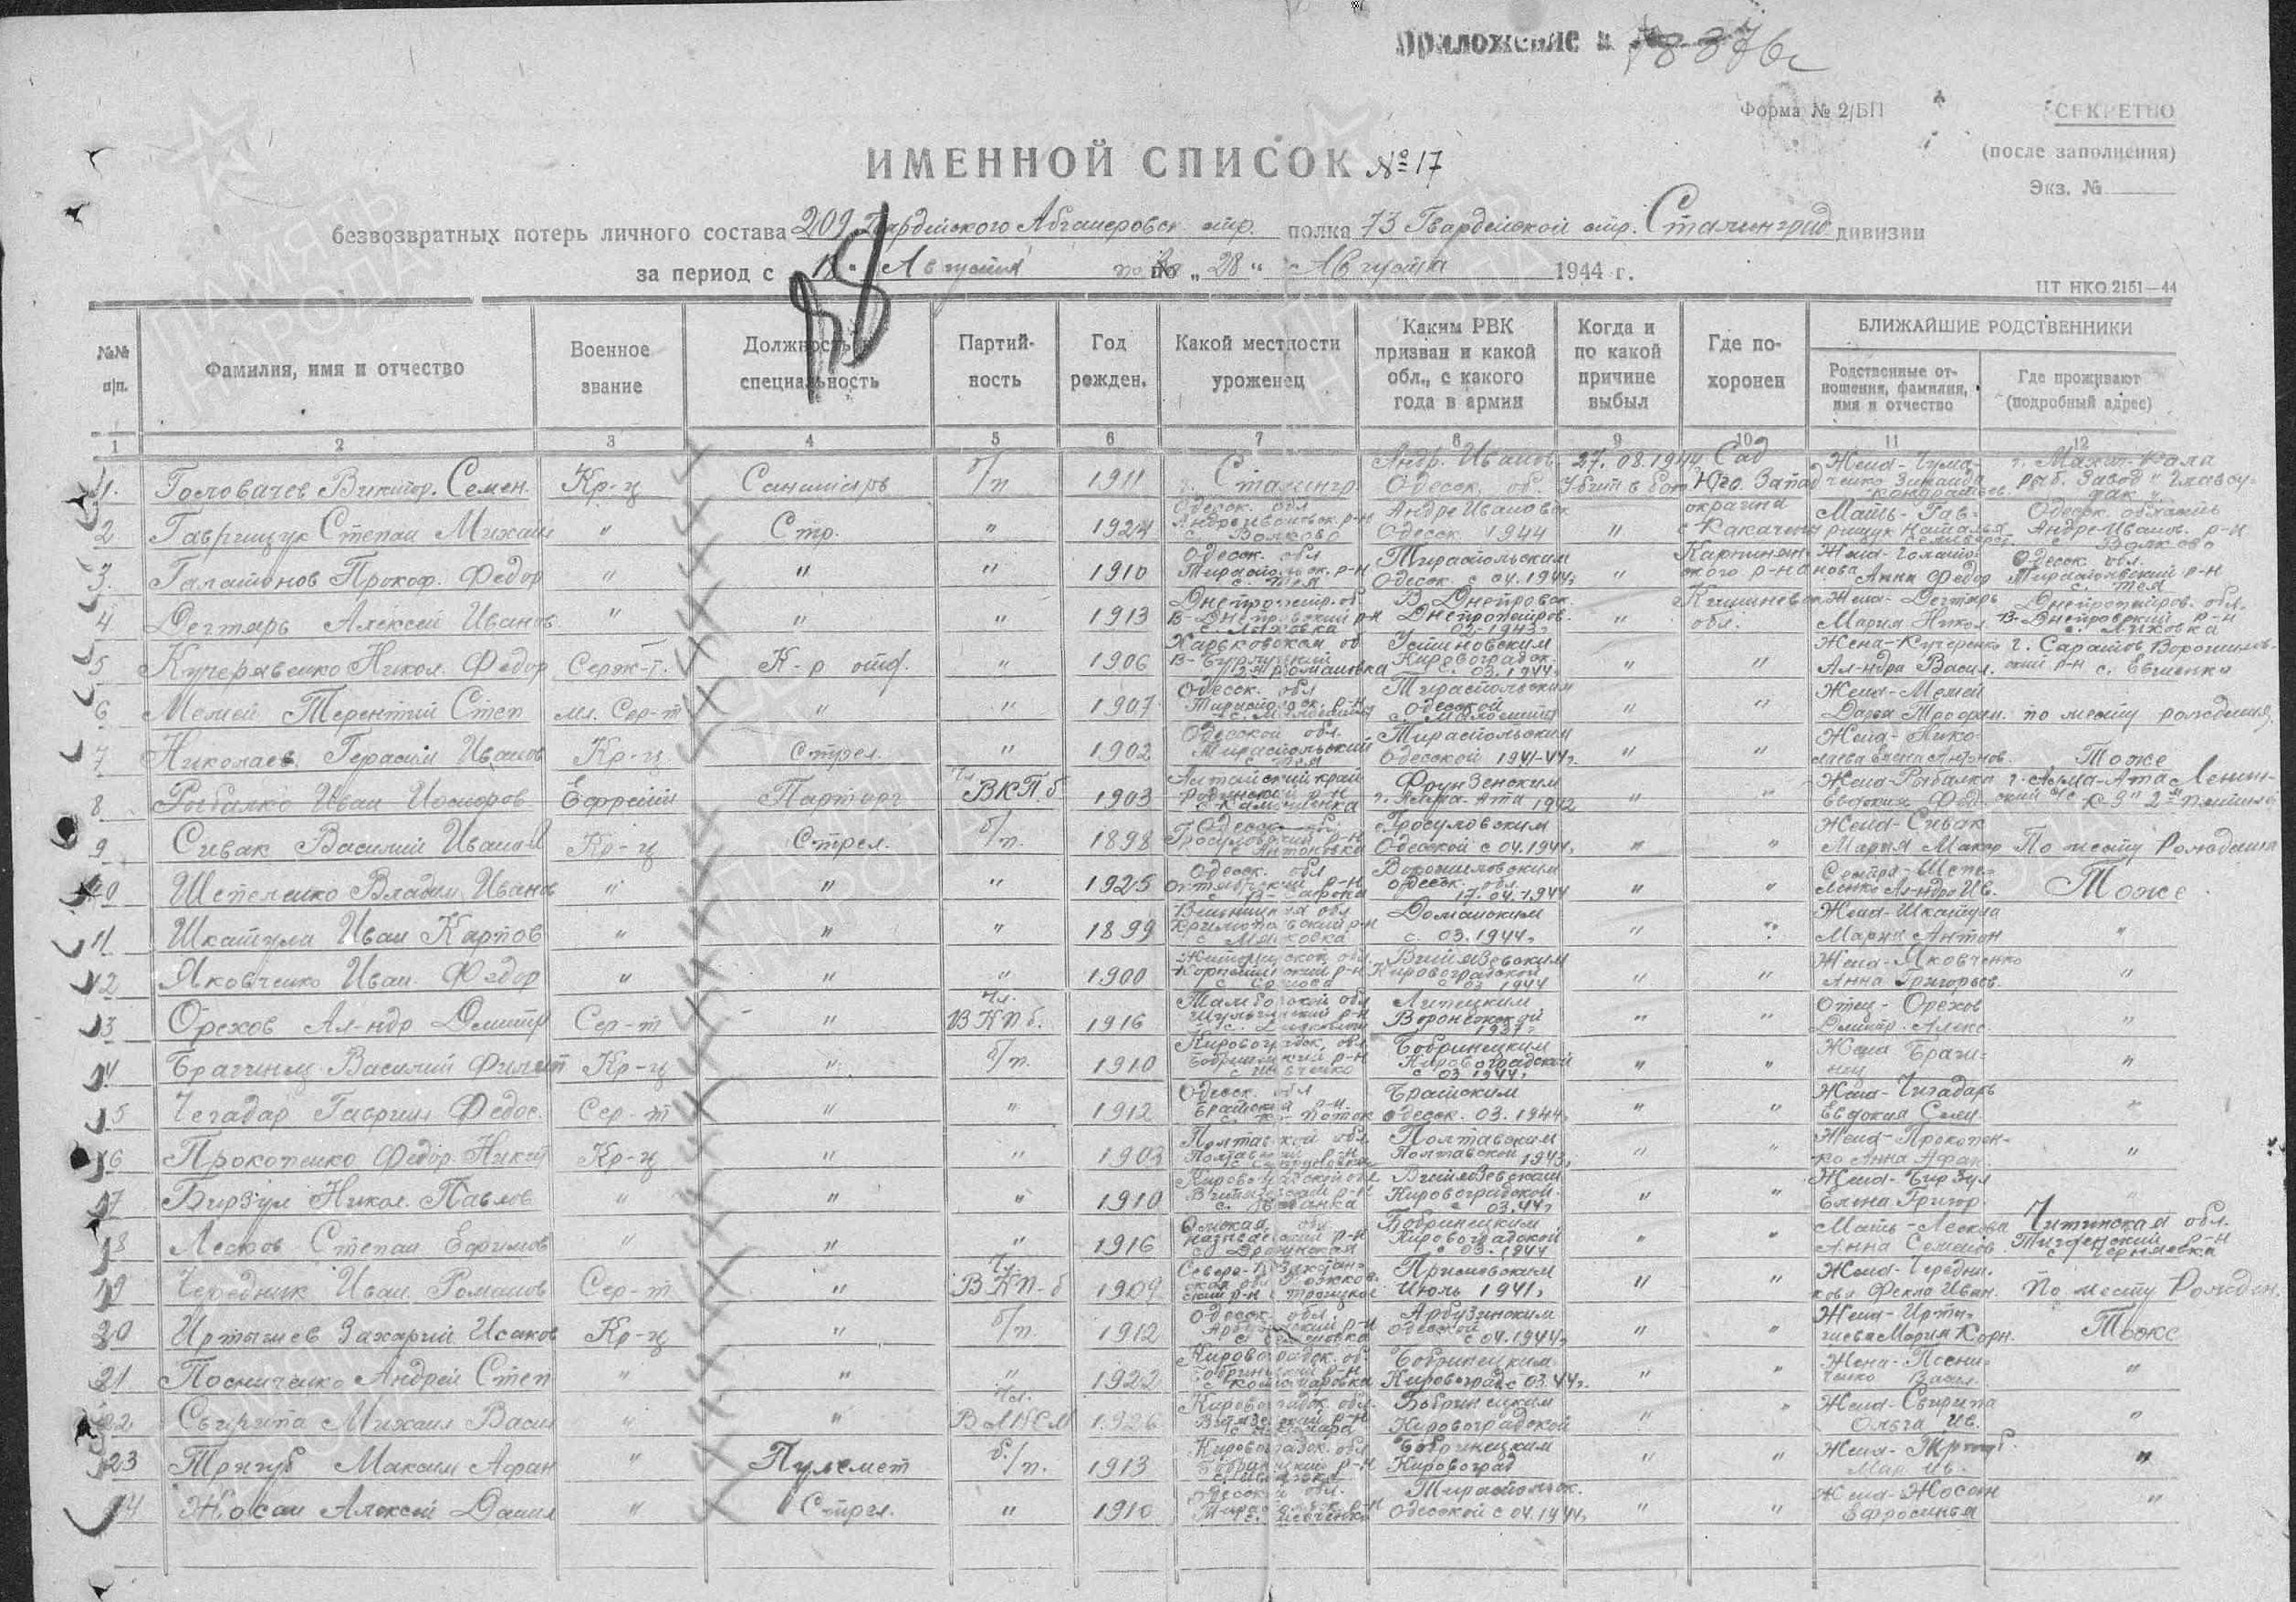 Приложение к № 8376с
Форма № 2/БП
СЕКРЕТНО
(после заполнения)
Экз. №
ИМЕННОЙ СПИСОК № 17
безвозвратных потерь личного состава 209 Гвардейского Абганеровск стр. полка 73 Гвардейской стр. Сталинград дивизии
за период с 18 " Августа по „ 28 " Августа 1944 г.
ЦТ НКО 2151—44
№№ п/п.
Фамилия, имя и отчество
Военное звание
Должность и специальность
Партийность
Год рожден.
Какой местности уроженец
Каким РВК призван и какой обл., с какого года в армии
Когда и по какой причине выбыл
Где похоронен
БЛИЖАЙШИЕ РОДСТВЕННИКИ
Родственные отношения, фамилия, имя и отчество
Где проживают (подробный адрес)
1 2 3 4 5 6 7 8 9 10 11 12
1. Головачев Виктор. Семен. Кр-ц Санитаръ б/п 1911 г. Сталингр Андр. Иванов. Одесск. об. 27.08.1944 Убит в бою Сад Юго. Запад Жена - Чума-ченко Зинаида Кондратьев. г. Махач-Кала рыб. завод
2 Гаврищук Степан Михаил " Стр. " 1924 Одесск. обл Андреивановск. р-н с. Волково Андре Ивановск Одесск 1944 " окраина с Какачены Мать - Гав-рищук Наталья Одесск. область Андре-Иванов. р-н с. Волково
3. Галатонов Прокоф. Федор " " " 1910 Одесск. обл Тираспольск. р-н с. Тея Тираспольским Одесск. с 04.1944г. " Карпинян-ского р-на Жена - Голато-нова Анна Федор Одесск обл. Тираспольский р-н с. Тея
4 Дегтярь Алексей Иванов " " " 1913 Днепропетр. об В-Днепровский р-н с. Лиховка В. Днепровск. Днепропетров. 02-1943г " Кишиневск обл. Жена - Дегтярь Мария Никол. Днепропетров. обл. В-Днепровский р-н с. Лиховка
5 Кучерявенко Никол. Федор Серж-т. К-р отд. " 1906 Харьковской об В-Бурлукский р-н Романовка Устиновским Кировоградск. с 03.1944г. " " Жена - Кучеренко Ал-ндра Васил. г. Саратов, Ворошилов-ский р-н с.
6 Мемей Терентий Степ мл. Сер-т " " 1907 Одесск. обл Тираспольск. р-н Тираспольским Одесской " " Жена - Мемей Дарья Трофим. по месту рождения
7 Николаев Герасим Иванов Кр-ц Стрел. " 1902 Одесской обл. Тираспольский с Тея Тираспольским Одесской 1941-44г. " " Жена - Нико-лаева Елена Тоже
8 Рыбалко Иван Ефрейт Парторг Чл ВКП.б 1903 Алтайский край Родинский р-н с Каменка Фрунзенским г. Алма-Ата 1942 " " Жена - Рыбалка Евдокия Фед. г. Алма-Ата Ленин-ский
9 Сивак Василий Иванов Кр-ц Стрел. б/п. 1898 Одесск. об. Гросуловский р-н с Антоновка Гросуловским Одесской с 04.1944г. " " Жена - Сивак Мария Макар По месту Рождения
10 Шепеленко Владим. Иванов " " " 1925 Одесск. обл Октябрьский р-н Ворошиловским Одесск. обл. 17.04.1944 " " Сестра - Шепе-ленко Ал-ндра Ив. Тоже
11 Шкатула Иван Карпов " " " 1899 Винницкая обл с Мястковка Доманским с. 03.1944г. " " Жена - Шкатула Мария Антон "
12 Яковченко Иван Федор " " " 1900 Житомирской обл. Витязевским Кировоградской с 03 1944 " " Жена - Яковченко Анна Григорьев. "
13 Орехов Ал-ндр Дмитр Сер-т " Чл. ВКПб. 1916 Тамбовской обл Липецким Воронежской 1937г. " " Отец - Орехов Дмитр. Алекс. "
14 Брагинец Василий Филип Кр-ц " б/п. 1910 Кировоградск. обл Бобринецкий р-н Бобринецким Кировоградской с 03 1944г. " " Жена Браги-нец "
15 Чегадар Гаврил Федос. Сер-т " " 1912 Одесск. обл Братский р-н Братским Одесск. 03.1944г. " " Жена - Чигадарь Евдокия Сем. "
16 Прокопенко Федор Никит Кр-ц " " 1903 Полтавской обл. Полтавский р-н Полтавским Полтавской 1943г. " " Жена - Прокопен-ко Анна Афан. "
17 Бирзул Никол. Павлов " " " 1910 Кировоградской обл Витязевский р-н Витязевским Кировоградской. с 03.44г " " Жена - Бирзул Елена Григор.
18 Лесков Степан Ефимов " " " 1916 Омская обл. Бобринецким Кировоградской с 03.1944 " " Мать - Лескова Анна Семенов. Читинская обл. р-н с Черняевка
19 Чередник Иван Романов Сер-т " Чл ВКП-б 1909 Северо-Казахстан-ская обл с Троицкое Пришевским Июль 1941г " " Жена - Чередни-кова Фекла Иван. По месту Рожден.
20 Иртышев Захарий Исаков Кр-ц " б/п. 1912 Одесск. обл. Арбузинский р-н с Семеновка Арбузинским Одесской с 04.1944г. " " Жена - Ирты-шева Мария Корн. Тоже
21 Посниченко Андрей Степ " " " 1922 Кировоградск. об. Бобринецкий р-н с Костомаровка Бобринецким Кировоград. с 03.44г. " " Жена - Посни-ченко Васил. "
22. Свирипа Михаил Васил " " Чл. ВЛКСМ 1926 Кировоградск. обл. Витязевский р-н Бобринецким Кировоградской " " Жена - Свирипа Ольга Ив. "
23 Тригуб Максим Афан " Пулемет б./п. 1913 Кировоградск. обл Бобринецкий р-н Бобринецким Кировоград " " Жена - Тригуб. Мар. Ив. "
24 Жосан Алексей Данил " Стрел. " 1910 Одесской обл. Тираспольск р-н Тираспольск. Одесской с 04.1944г. " " Жена - Жосан Ефросинья "
ПАМЯТЬ НАРОДА